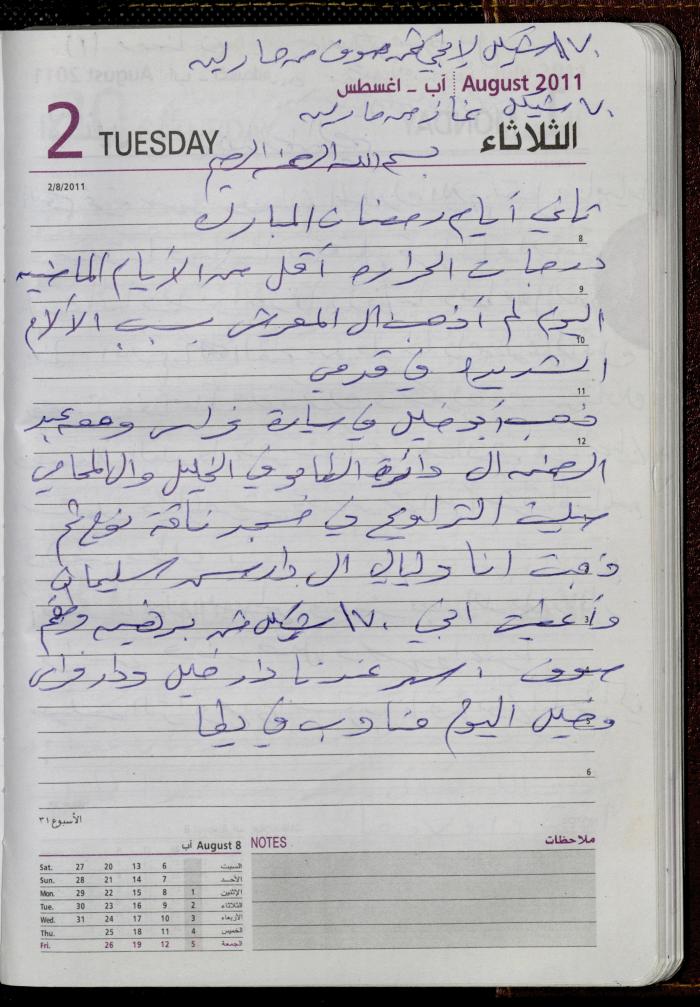 ١٧٠ شيكل لإمي ثمن صوف من ماريه
August 2011 آب ـ اغسطس
٧٠ شيكل غاز من ماريه
2 TUESDAY الثلاثاء
بسم الله الرحمن الرحيم
2/8/2011
ثاني أيام رمضان المبارك
8
درجات الحراره أقل من الأيام الماضيه
9
اليوم لم أذهب ال المعرش بسبب الآلام
10
الشديدة في قدمي
11
ذهب أبو خليل في سيارة ومعه عبد
12
الرحمن ال دائرة في الخليل والمحامي
صليت التراويح في مسجد ناقة نوح ثم
ذهبت انا وليالي ال دار سليمان
وأعطيت امي ١٧٠ شيكل ثمن
3
صوف . سهر عندنا دار خليل ودار فراس
وخليل اليوم مناوب في يطا
6
الأسبوع ٣١
August 8 آب
NOTES ملاحظات
Sat. 27 20 13 6 السبت
Sun. 28 21 14 7 الأحد
Mon. 29 22 15 8 1 الإثنين
Tue. 30 23 16 9 2 الثلاثاء
Wed. 31 24 17 10 3 الأربعاء
Thu. 25 18 11 4 الخميس
Fri. 26 19 12 5 الجمعة